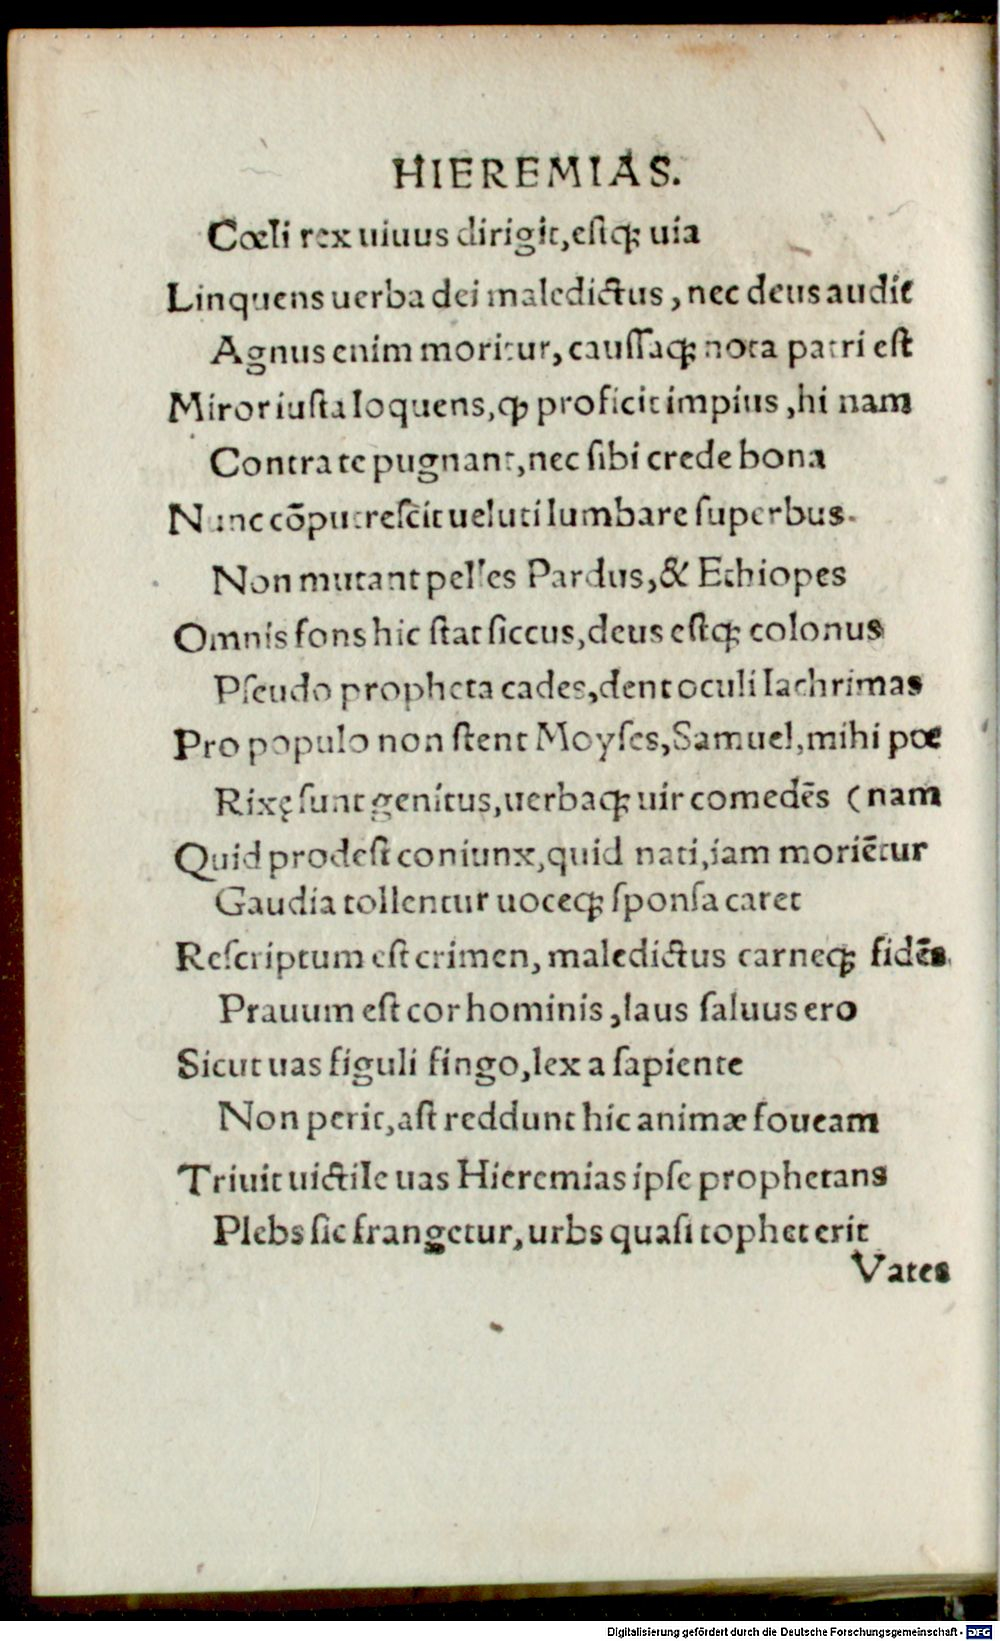 HIEREMIAS.
Cœli rex uiuus dirigit,estq; uia
Linquens uerba dei maledictus, nec deus audit
Agnus enim moritur, caussaq; nota patri est
Miror iusta loquens,ꝙ proficit impius ,hi nam
Contra te pugnant,nec sibi crede bona
Nunc cōputrescit ueluti lumbare superbus.
Non mutant pelles Pardus,& Ethiopes
Omnis fons hic stat siccus,deus estq; colonus
Pseudo propheta cades,dent oculi lachrimas
Pro populo non stent Moyses,Samuel,mihi pœ
Rixę sunt genitus,uerbaq; uir comedēs (nam
Quid prodest coniunx,quid nati,iam moriētur
Gaudia tollentur uoceq; sponsa caret
Rescriptum est crimen, maledictus carneq; fidēs.
Prauum est cor hominis ,laus saluus ero
Sicut uas figuli fingo,lex a sapiente
Non perit,ast reddunt hic animæ foueam
Triuit uictile uas Hieremias ipse prophetans
Plebs sic frangetur, urbs quasi tophet erit
Vates
Digitalisierung gefördert durch die Deutsche Forschungsgemeinschaft - DFG